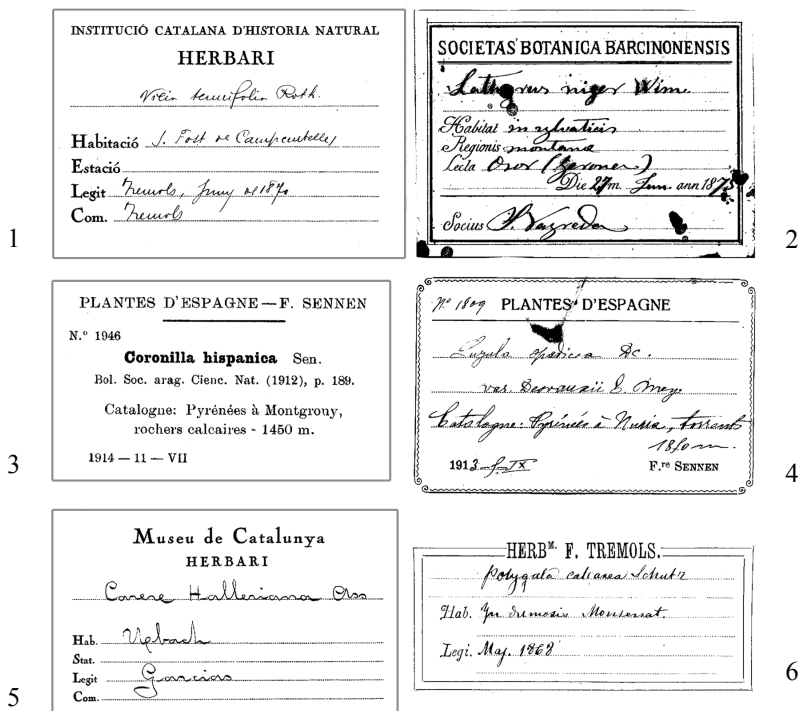 INSTITUCIÓ CATALANA D'HISTORIA NATURAL
HERBARI
Vicia tenuifolia Roth.
Habitació S. Fost de Campcentelles
Estació
Legit Tremols, Juny de 1870
Com. Tremols
1
SOCIETAS BOTANICA BARCINONENSIS
Lathyrus niger Wim.
Habitat in sylvaticis
Regionis montana
Lecta Osor (Gerona)
Die 27 m. Jun. ann 1873
Socius Vayreda
2
PLANTES D'ESPAGNE — F. SENNEN
N.º 1946
Coronilla hispanica Sen.
Bol. Soc. arag. Cienc. Nat. (1912), p. 189.
Catalogne: Pyrénées à Montgrouy,
rochers calcaires - 1450 m.
1914 — 11 — VII
3
Nº 1809 PLANTES D'ESPAGNE
Luzula spadicea DC.
var. Desvauxii E. Mey.
Catalogne: Pyrénées à Nuria, torrents
18 0 m.
1913 IX F.re SENNEN
4
Museu de Catalunya
HERBARI
Carex Halleriana Asso
Hab.
Stat.
Legit Garcias
Com.
5
HERB.M F. TREMOLS.
Polygala calcarea Schultz
Hab. In dumosis Monserrat.
Legi. Maj. 1868
6